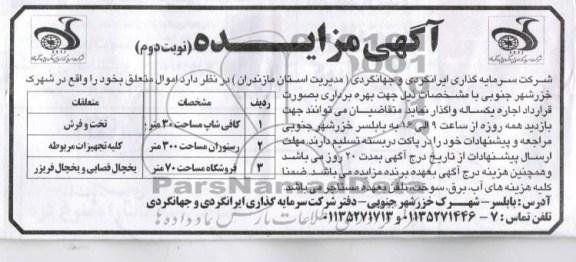 آگهی مزایـــده (نوبت دوم)
شرکت سرمایه گذاری ایرانگردی و جهانگردی ( مدیریت استان مازندران ) در نظر دارد اموال متعلق بخود را واقع در شهرک
خزرشهر جنوبی با مشخصات ذیل جهت بهره برداری بصورت
قرارداد اجاره یکساله واگذار نماید. متقاضیان می توانند جهت
بازدید همه روزه از ساعت ۹ الی ۱۶ به بابلسر خزرشهر جنوبی
مراجعه و پیشنهادات خود را در پاکت دربسته تسلیم دارند. مهلت
ارسال پیشنهادات از تاریخ درج آگهی بمدت ۲۰ روز می باشد
وهمچنین هزینه درج آگهی بعهده برنده مزایده می باشد. ضمنا
کلیه هزینه های آب، برق، سوخت، تلفن بعهده مستاجر می باشد
ردیف مشخصات متعلقات
۱ کافی شاپ مساحت ۳۰ متر تخت و فرش
۲ رستوران مساحت ۳۰۰ متر کلیه تجهیزات مربوطه
۳ فروشگاه مساحت ۷۰ متر یخچال قصابی و یخچال فریزر
آدرس: بابلسر - شهرک خزرشهر جنوبی - دفتر شرکت سرمایه گذاری ایرانگردی و جهانگردی
تلفن تماس: ۷ - ۰۱۱۳۵۲۷۱۴۴۶ و ۰۱۱۳۵۲۷۱۷۱۳
ParsNamadData